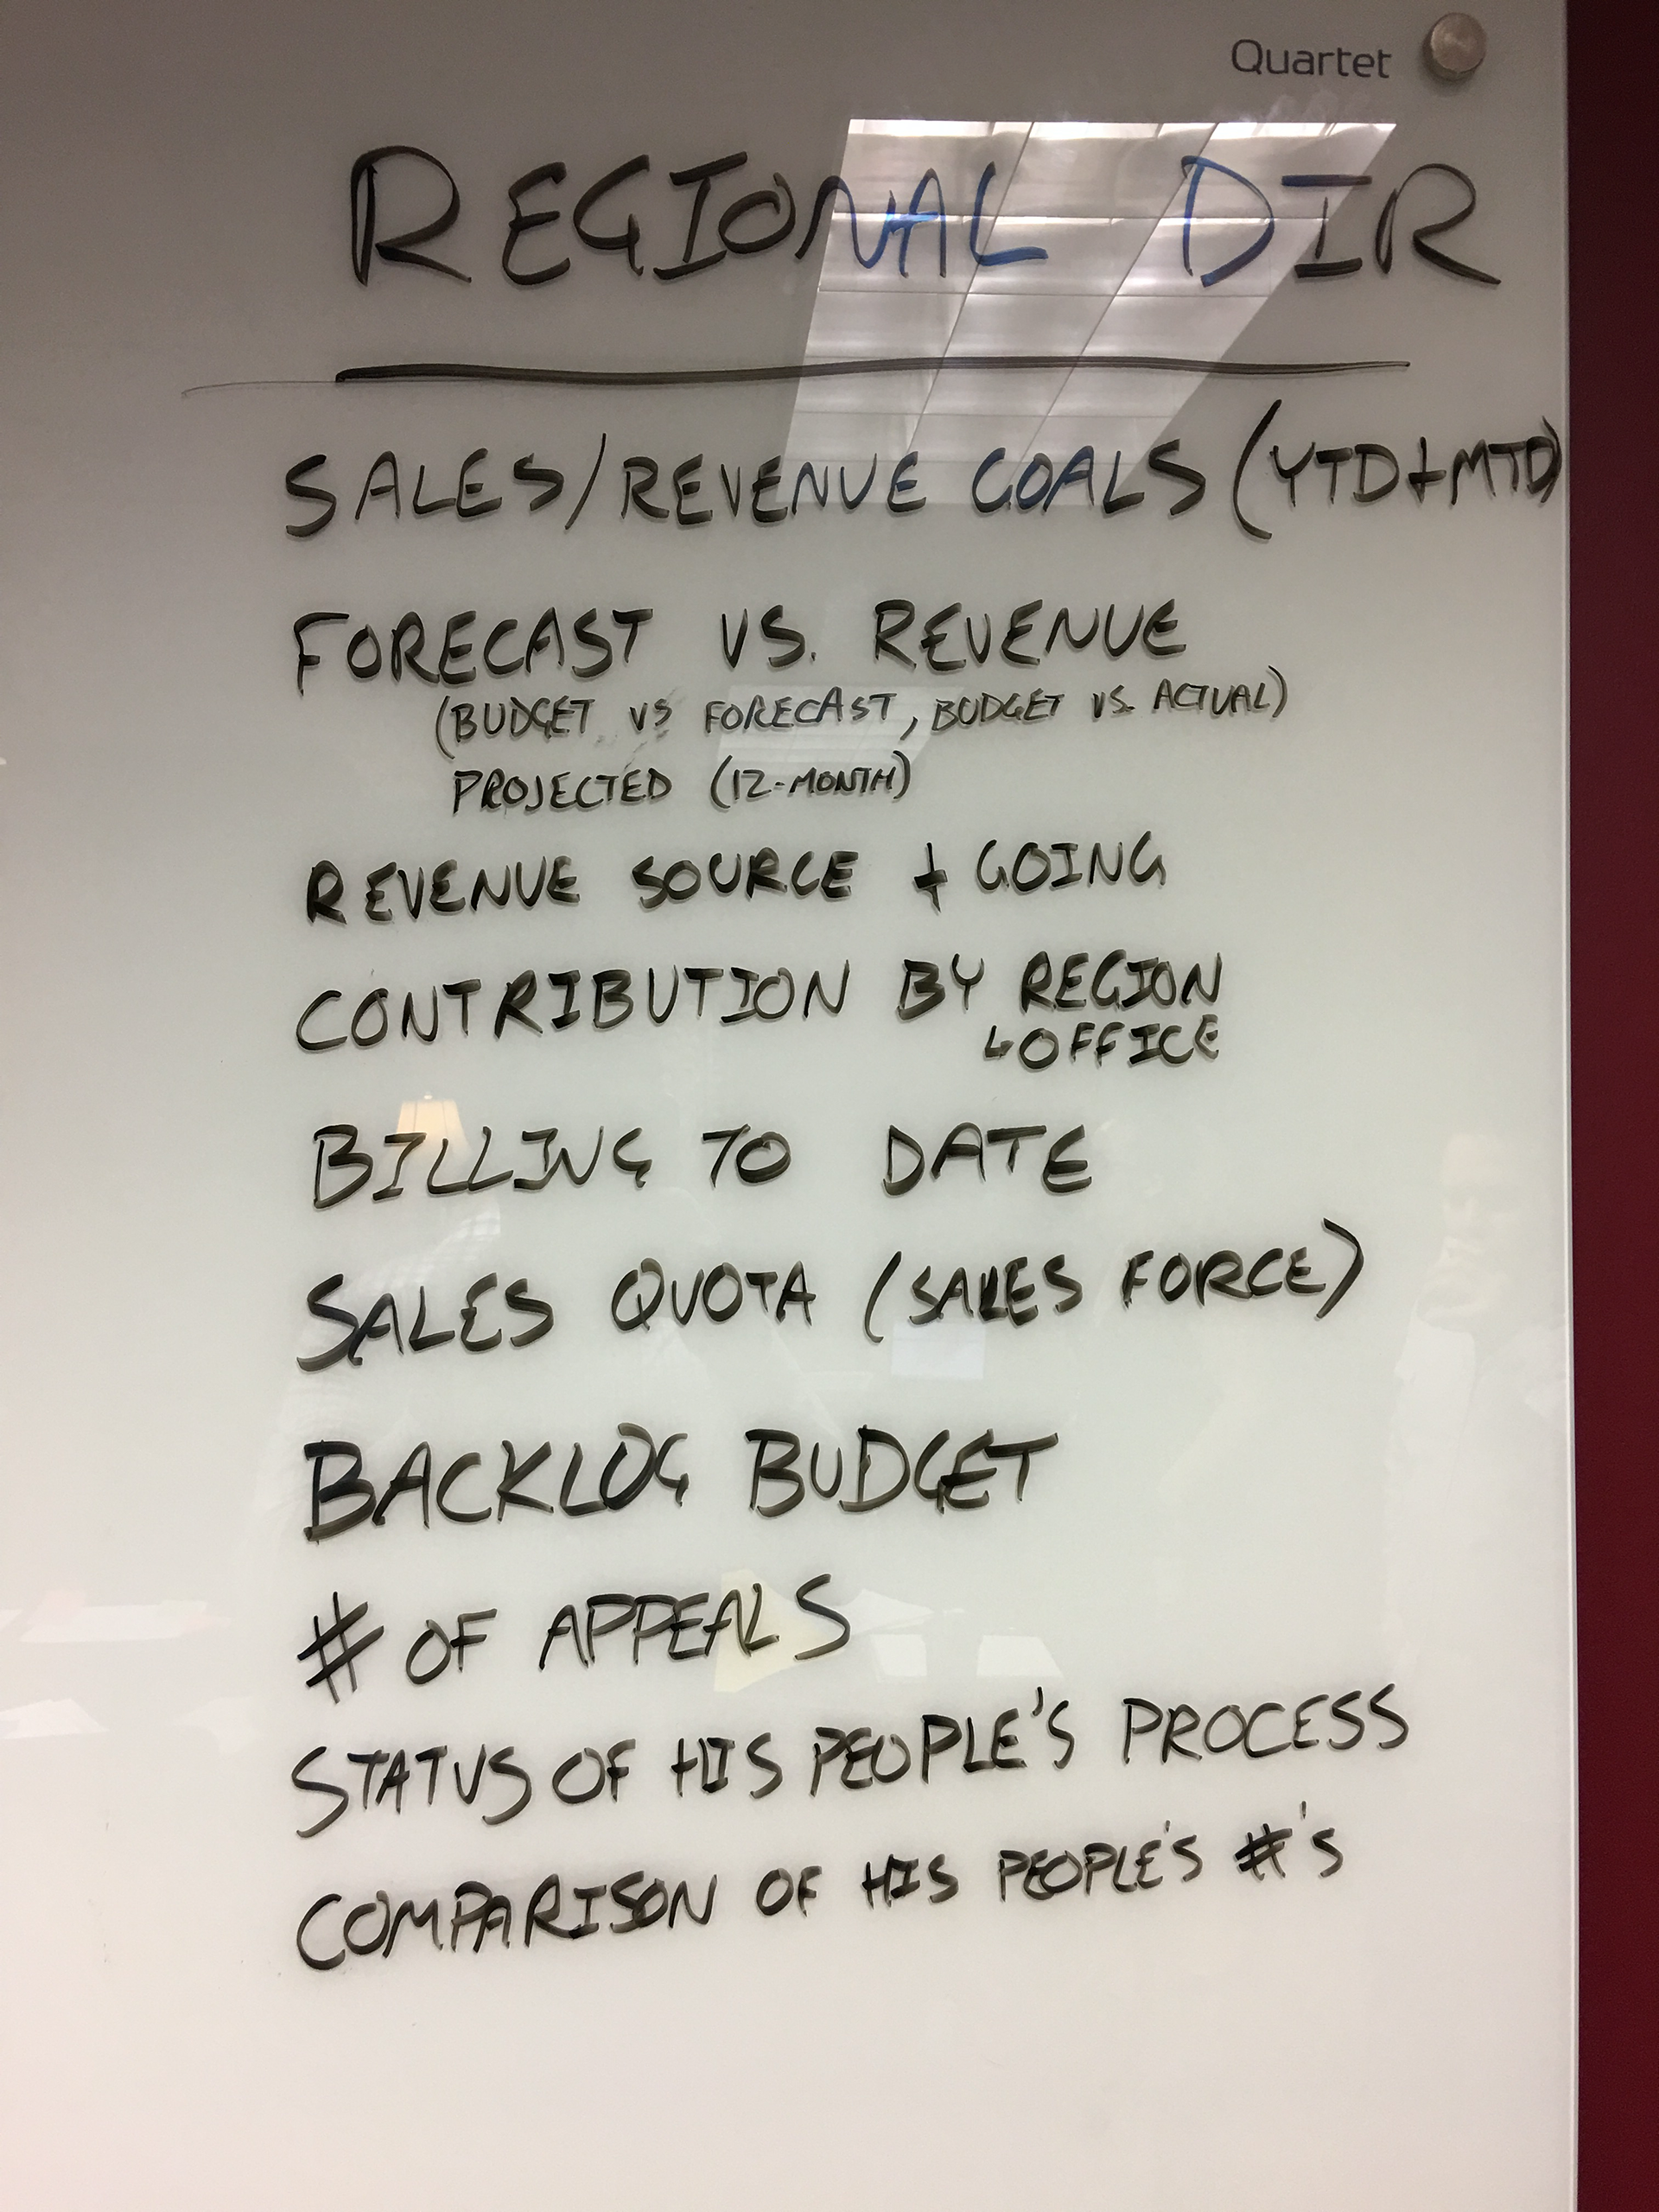 Quartet
REGIONAL DIR
SALES/REVENUE GOALS (YTD+MTD)
FORECAST VS. REVENUE
(BUDGET VS FORECAST, BUDGET VS. ACTUAL)
PROJECTED (12-MONTH)
REVENUE SOURCE + GOING
CONTRIBUTION BY REGION
↳OFFICE
BILLING TO DATE
SALES QUOTA (SALES FORCE)
BACKLOG BUDGET
# OF APPEALS
STATUS OF HIS PEOPLE'S PROCESS
COMPARISON OF HIS PEOPLE'S #'S